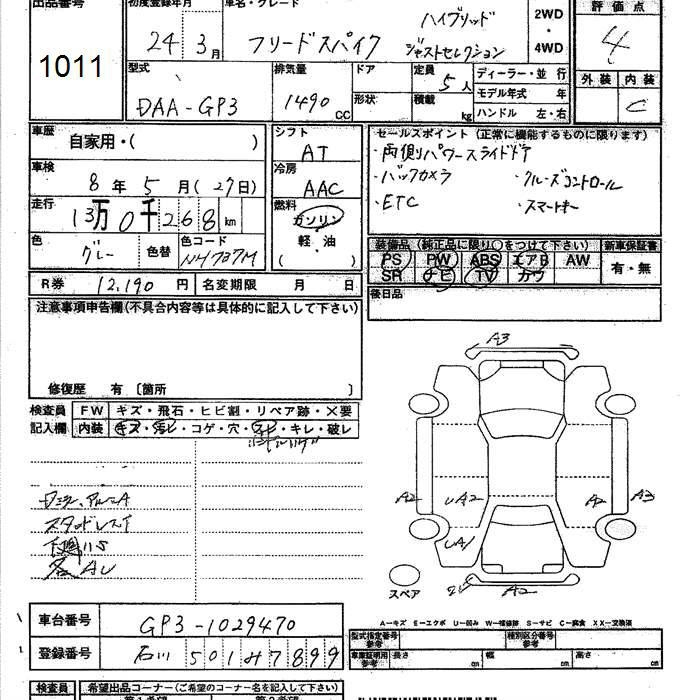 出品番号 初度登録年月 車名・グレード 評価点
1011
24年 3月 フリードスパイク ハイブリッド ジャストセレクション 2WD・4WD 4
型式 排気量 ドア 定員 5人 ディーラー・並行 外装 内装
DAA-GP3 1490cc 形状 積載 kg モデル年式 年 C
ハンドル 左・右
車歴 自家用・( ) シフト AT セールスポイント(正常に機能するものに限ります)
・両側パワースライドドア
車検 8年 5月(27日) 冷房 AAC ・バックカメラ ・クルーズコントロール
・ETC ・スマートキー
走行 13万0千268km 燃料 ガソリン
軽油
( )
色 グレー 色替 色コード NH737M
装備品(純正品に限り〇をつけて下さい) 新車保証書
PS PW ABS エアB AW 有・無
SR ナビ TV カワ
R券 12,190円 名変期限 月 日 後日品
注意事項申告欄(不具合内容等は具体的に記入して下さい)
修復歴 有 〔箇所 〕
検査員 FW キズ・飛石・ヒビ割・リペア跡・×要
記入欄 内装 キズ・汚レ・コゲ・穴・スレ・キレ・破レ
A3
A2 UA2 A2 A3
UA1
A2
スタッドレス
スペア
A-キズ E-エクボ U-凹み W-補修跡 S-サビ C-腐食 XX-交換済
車台番号 GP3-1029470
型式指定番号 参考 種別区分番号 参考
登録番号 石川 501 ム 7899
車庫証明用 参考 長さ cm 幅 cm 高さ cm
検査員 希望出品コーナー(ご希望のコーナー名を記入して下さい)